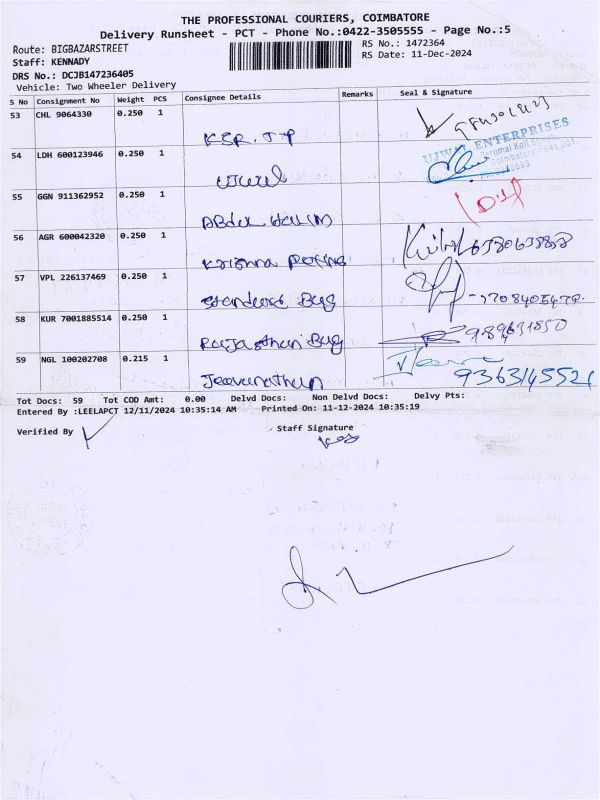 THE PROFESSIONAL COURIERS, COIMBATORE
Delivery Runsheet - PCT - Phone No.:0422-3505555 - Page No.:5
Route: BIGBAZARSTREET
RS No.: 1472364
Staff: KENNADY
RS Date: 11-Dec-2024
DRS No.: DCJB147236405
Vehicle: Two Wheeler Delivery
S No Consignment No Weight PCS Consignee Details Remarks Seal & Signature
53 CHL 9064330 0.250 1
KSR. J P
54 LDH 600123946 0.250 1
UJWAL ENTERPRISES
55 GGN 911362952 0.250 1
Abdul Halim
56 AGR 600042320 0.250 1
6380635888
Krishna
57 VPL 226137469 0.250 1
Standard Bag
58 KUR 7001885514 0.250 1
Rajasthan Bag
59 NGL 100202708 0.215 1
Jeevanathan
9363145521
Tot Docs: 59 Tot COD Amt: 0.00 Delvd Docs: Non Delvd Docs: Delvy Pts:
Entered By :LEELAPCT 12/11/2024 10:35:14 AM Printed On: 11-12-2024 10:35:19
Verified By
Staff Signature